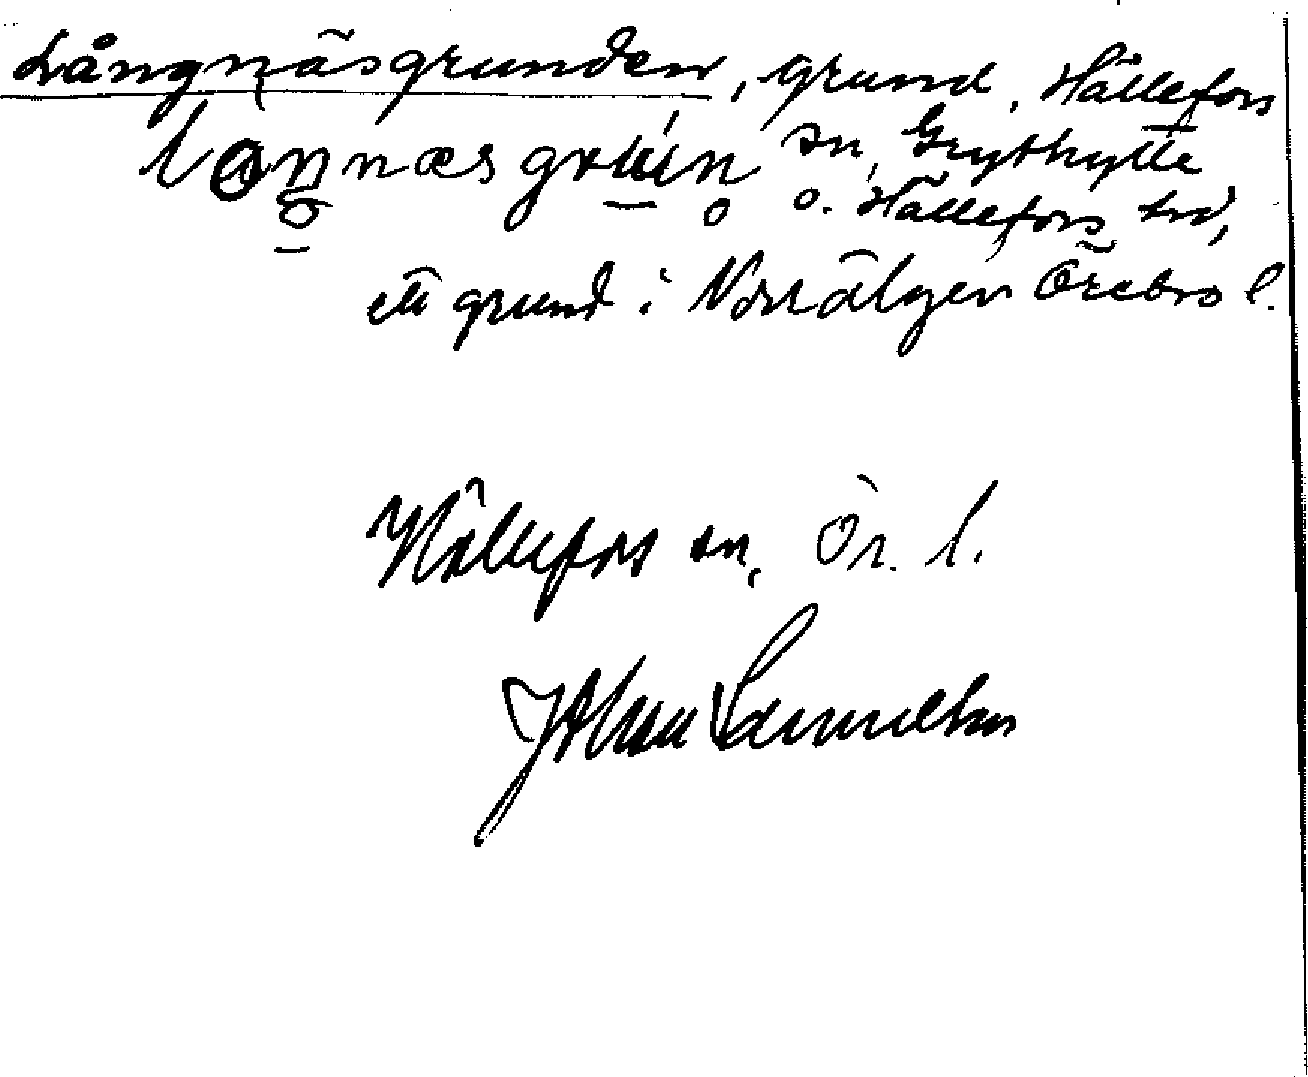 Långnäsgrunden, grund, Hällefors
sn, Grythytte
o. Hällefors hd,
ett grund i Norrälgen Örebro l.
Hällefors sn, Ör. l.
Johan Samuelson